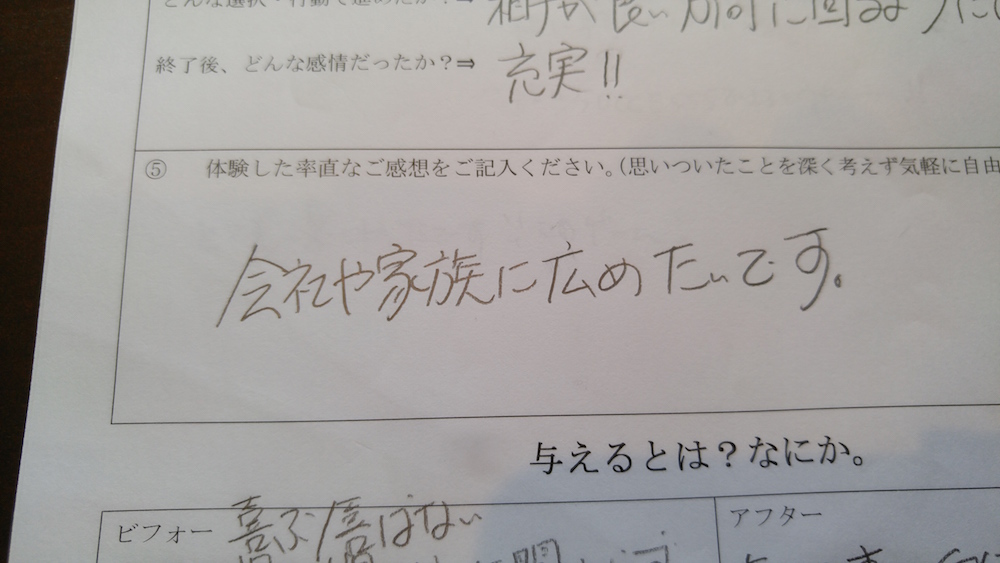 どんな選択・行動で進めたか？⇒ 相手が良い方向に回るように
終了後、どんな感情だったか？⇒ 充実!!
⑤ 体験した率直なご感想をご記入ください。（思いついたことを深く考えず気軽に自由
会社や家族に広めたいです。
与えるとは？なにか。
ビフォー 喜ぶ
はない
アフター